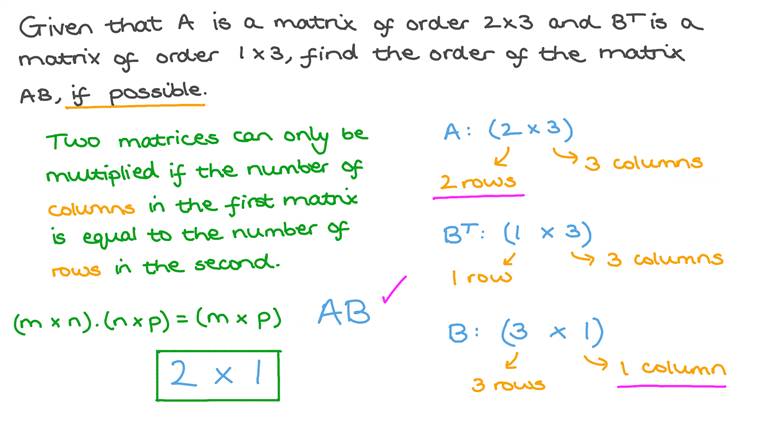 Given that A is a matrix of order 2×3 and Bᵀ is a
matrix of order 1×3, find the order of the matrix
AB, if possible.
Two matrices can only be
multiplied if the number of
columns in the first matrix
is equal to the number of
rows in the second.
(m × n).(n × p) = (m × p)
AB ✓
2 × 1
A: (2 × 3)
2 rows
3 columns
Bᵀ: (1 × 3)
1 row
3 columns
B: (3 × 1)
3 rows
1 column